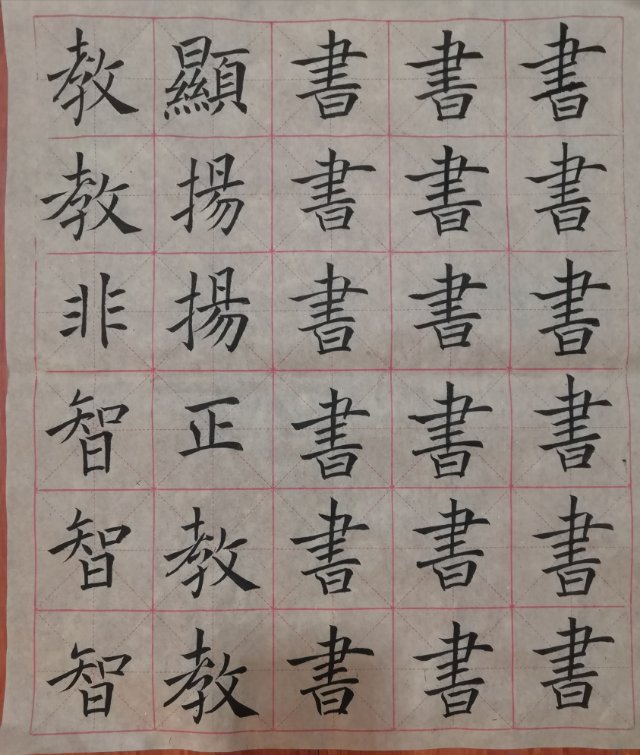 書書書書書書
書書書書書書
書書書書書書
顯揚揚正教教
教教非智智智